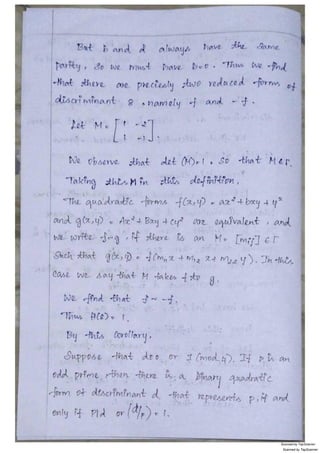 But b and d always have the same
parity, so we must have b=0. Thus we find
that there are precisely two reduced forms of
discriminant 8, namely f and -f.
Let M = [1 -2
1 -1].
We observe that det (M)=1, so that M ∈ Γ.
Taking this M in this definition.
"The quadratic forms f(x,y) = ax² + bxy + y²
and g(x,y) = Ax² + Bxy + Cy² are equivalent, and
we write f~g, if there is an M = [mij] ∈ Γ
such that g(x,y) = f(m11 x + m12 x + m22 y). In this
case we say that M takes f to g.
We find that f ~ -f.
Thus H(8) = 1.
By this Corollary.
Suppose that d≡0 or 1 (mod 4). If p is an
odd prime, then there is a binary quadratic
form of discriminant d that represents p, if and
only if p|d or (d/p) = 1.
Scanned by TapScanner
Scanned by TapScanner